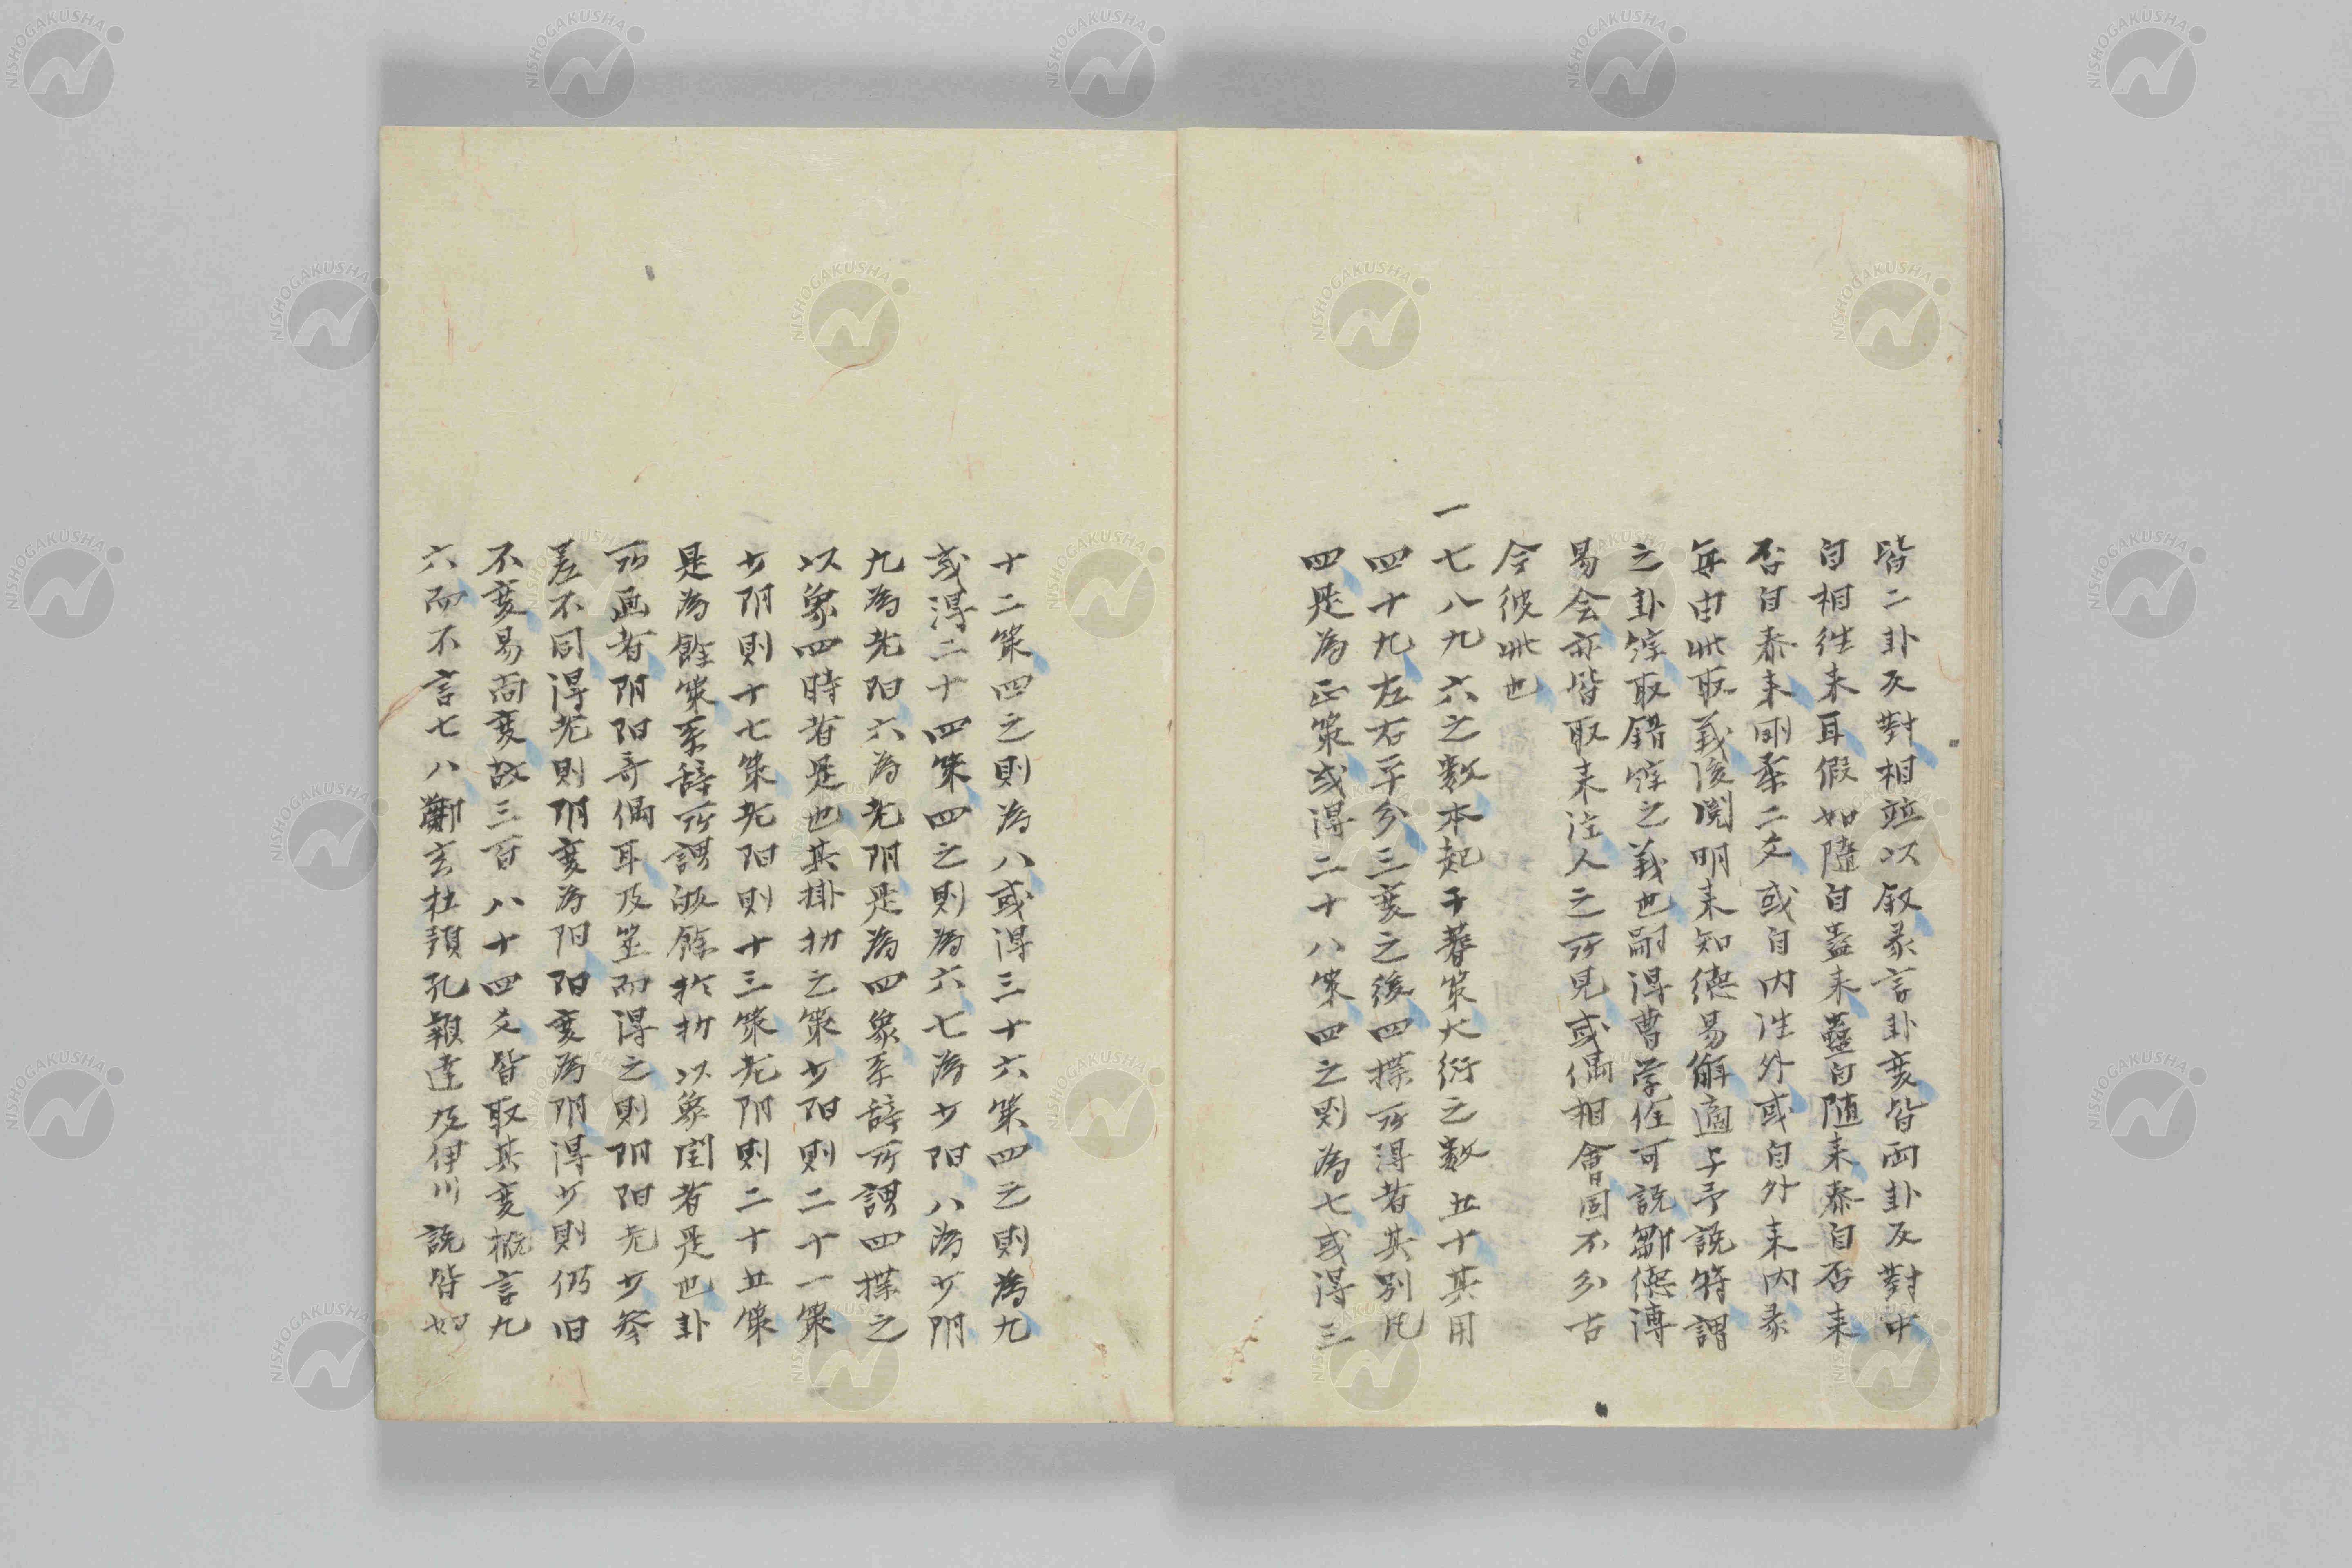 皆二卦反對相竝以叙彖言卦変皆両卦反對中
自相徃来耳假如隨自蠱来蠱自随来泰自否来
否自泰来剛柔二爻或自内徃外或自外来内彖
毎由此取義後閲明来知德易解適与予説符謂
之卦綜取錯綜之義也嗣得曹学佺可説鄒德溥
易会亦皆取来注人之所見或偶相會固不分古
今彼此也
一七八九六之數本起于蓍策大衍之數五十其用
四十九左右平分三変之後四揲所得者其別凡
四是為正策或得二十八策四之則為七或得三
十二策四之則為八或得三十六策四之則為九
或得二十四策四之則為六七為少陽八為少阴
九為老阳六為老阴是為四象系辞所謂四揲之
以象四時者是也其掛扐之策少阳則二十一策
少阴則十七策老阳則十三策老阴則二十五策
是為餘策系辞所謂敀餘於扐以象閏者是也卦
所画者阴阳奇偶耳及筮而得之則阴阳老少参
差不同得老則阴変為阳阳変為阴得少則仍旧
不変易尚変故三百八十四爻皆取其変概言九
六而不言七八鄭玄杜預孔穎達及伊川説皆如